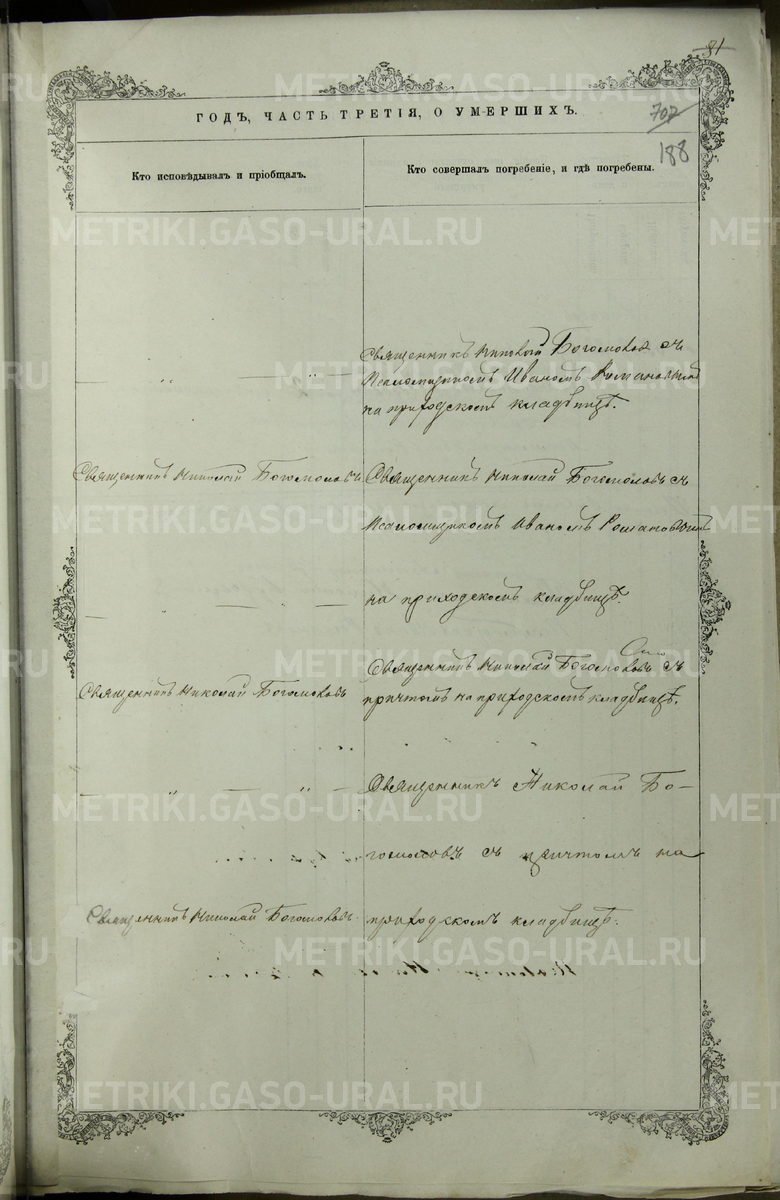 81
ГОДЪ, ЧАСТЬ ТРЕТІЯ, О УМЕРШИХЪ.
707
188
Кто исповѣдывалъ и пріобщалъ.
Кто совершалъ погребеніе, и гдѣ погребены.
Священникъ Николай Богомоловъ съ
Псаломщикомъ Иваномъ Романовымъ
на приходскомъ кладбищѣ.
Священникъ Николай Богомоловъ
Священникъ Николай Богомоловъ съ
Псаломщикомъ Иваномъ
на приходскомъ кладбищѣ.
Священникъ Николай Богомоловъ съ
Священникъ Николай Богомоловъ
причтомъ на приходскомъ кладбищѣ.
Священникъ Николай Бо-
гомоловъ съ причтомъ на
Священникъ Николай Богомоловъ
приходскомъ кладбищѣ.
METRIKI.GASO-URAL.RU